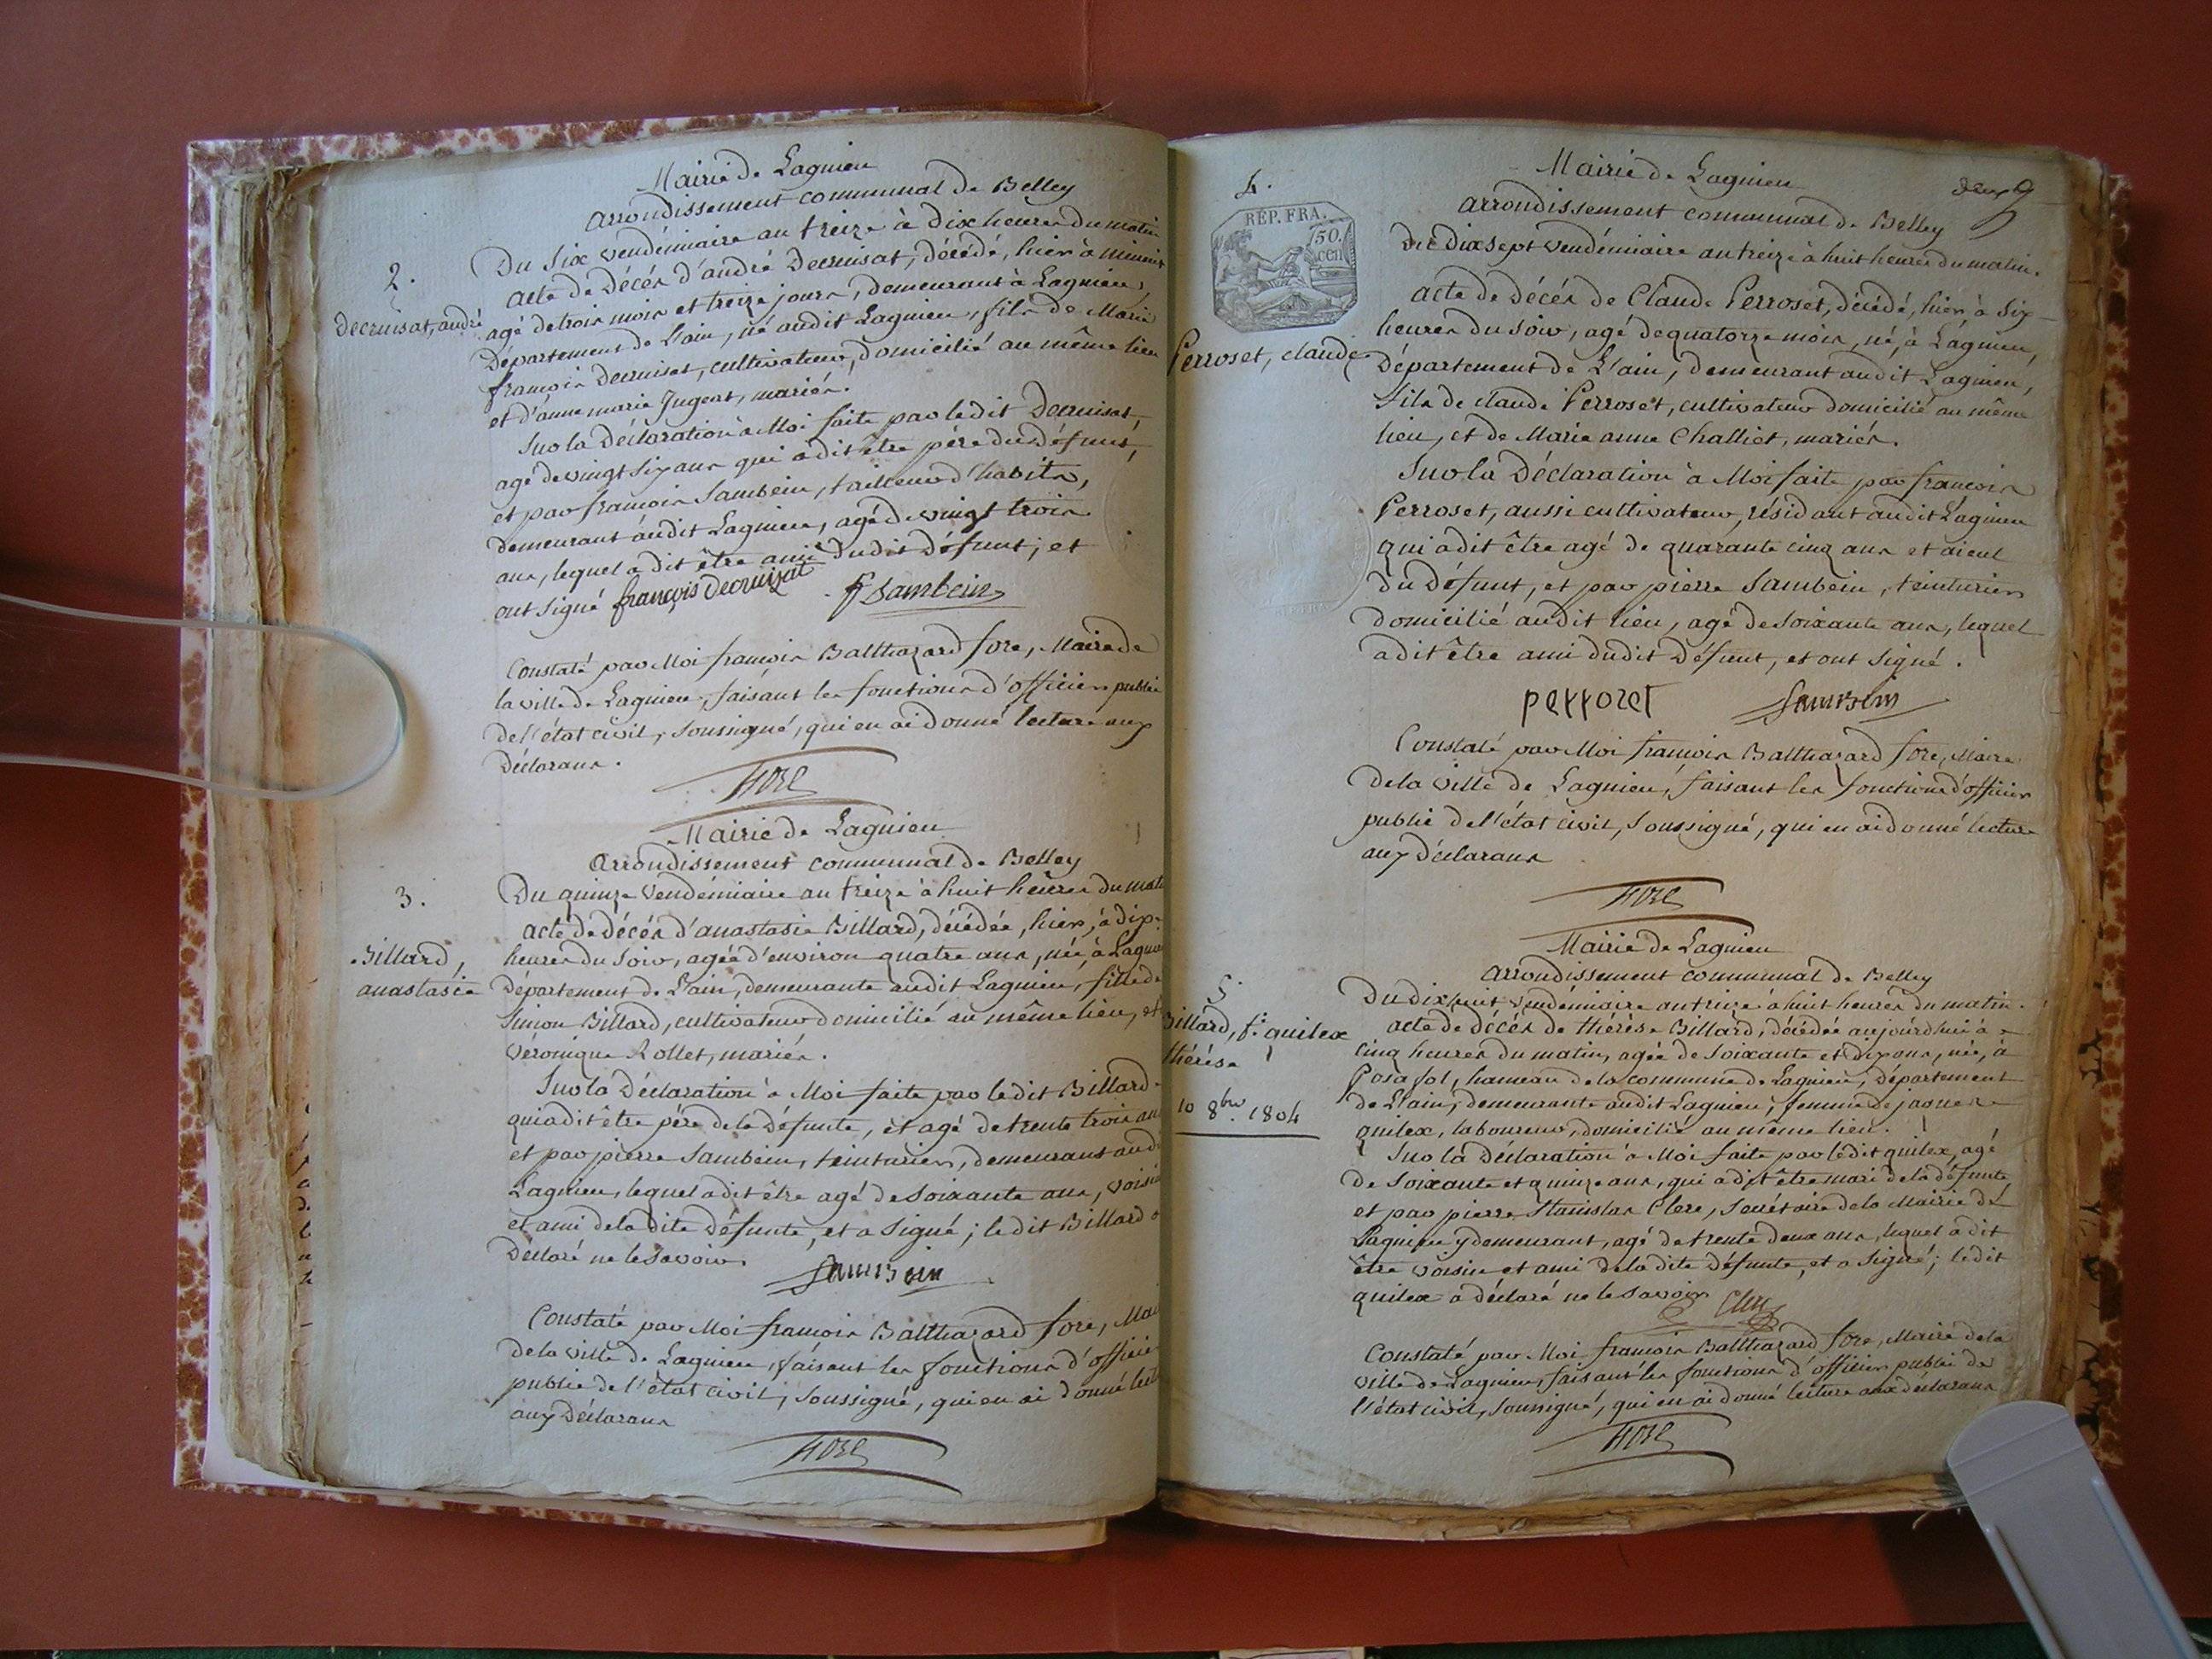 Mairie de Lagnieu
arrondissement communal de Belley
2.
Decruisat, andré
Du six vendémiaire an treize à dix heures du matin
acte de décès d'andré Decruisat, décédé, hier à minuit
agé de trois mois et treize jours, demeurant à Lagnieu,
Département de L'ain, né audit Lagnieu, fils de Marie
françois Decruisat, cultivateur, domicilié au même lieu
et d'anne marie Jugent, mariés.
Sur la Déclaration à Moi faite par ledit Decruisat,
agé de vingt six ans qui a dit être père du défunt,
et par françois Sambein, tailleur d'habits,
demeurant audit Lagnieu, agé de vingt trois
ans, lequel a dit être ami dudit défunt; et
ont signé françois decruizat f Sambein
Constaté par Moi françois Balthazard fore, Maire de
la ville de Lagnieu, faisant les fonctions d'officier public
de l'état civil, soussigné, qui en ai donné lecture aux
Déclarans.
fore
Mairie de Lagnieu
arrondissement communal de Belley
3.
Billard,
anastasie
Du quinze vendémiaire an treize à huit heures du mat
acte de décès d'anastasie Billard, décédée, hier, à dix
heures du soir, agée d'environ quatre ans, née, à Lagnieu
Département de L'ain, demeurante audit Lagnieu, fille de
Simon Billard, cultivateur domicilié au même lieu, et
véronique Rollet, mariés.
Sur la Déclaration à Moi faite par ledit Billard
qui a dit être père de la défunte, et agé de trente trois an
et par pierre Sambein, teinturier, demeurant aud
Lagnieu, lequel a dit être agé de soixante ans, voisin
et ami de la dite défunte, et a signé; ledit Billard a
Déclaré ne le savoir.
Sambein
Constaté par Moi françois Balthazard fore, Mai
de la ville de Lagnieu, faisant les fonctions d'officier
public de l'état civil, soussigné, qui en ai donné lect
aux Déclarans
fore
deux
Mairie de Lagnieu
arrondissement communal de Belley
4.
RÉP. FRA.
50.
cen
Perroset, claude
Du Dix sept vendémiaire an treize à huit heures du matin.
acte de décès de Claude Perroset, décédé, hier, à six
heures du soir, agé de quatorze mois, né, à Lagnieu,
Département de L'ain, demeurant audit Lagnieu,
fils de claude Perroset, cultivateur domicilié au même
lieu, et de Marie anne Challiot, mariés.
Sur la Déclaration à Moi faite par françois
Perroset, aussi cultivateur, résidant audit Lagnieu
qui a dit être agé de quarante cinq ans et aieul
du défunt, et par pierre Sambein, teinturier
domicilié audit lieu, agé de soixante ans, lequel
a dit être ami dudit Défunt, et ont signé.
perroset Sambein
Constaté par Moi françois Balthazard fore, Maire
de la ville de Lagnieu, faisant les fonctions d'officier
public de l'état civil, soussigné, qui en ai donné lecture
aux déclarans
fore
Mairie de Lagnieu
arrondissement communal de Belley
5.
Billard, fe. quilex
thérèse
10 8bre. 1804
Du dix huit vendémiaire an treize à huit heures du matin.
acte de décès de thérèse Billard, décédée aujourdhui à
cinq heures du matin, agée de soixante et dix ans, née, à
Posafol, hameau de la commune de Lagnieu, Département
de L'ain, demeurante audit Lagnieu, femme de jaques
quilex, laboureur, domicilié au même lieu.
Sur la déclaration à Moi faite par ledit quilex, agé
de soixante et quinze ans, qui a dit être mari de la défunte
et par pierre Stanislas Clerc, secrétaire de la Mairie de
Lagnieu y demeurant, agé de trente deux ans, lequel a dit
être voisin et ami de la dite défunte, et a signé; ledit
quilex a déclaré ne le savoir
Clerc
Constaté par Moi françois Balthazard fore, Maire de la
ville de Lagnieu, faisant les fonctions d'officier public de
l'état civil, soussigné, qui en ai donné lecture aux déclarans
fore